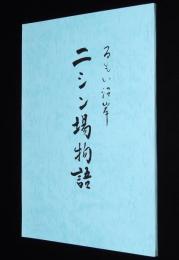 るもい沿岸
ニシン場物語